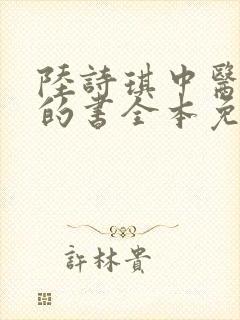 陸詩琪中醫
的書全本免
許林貴